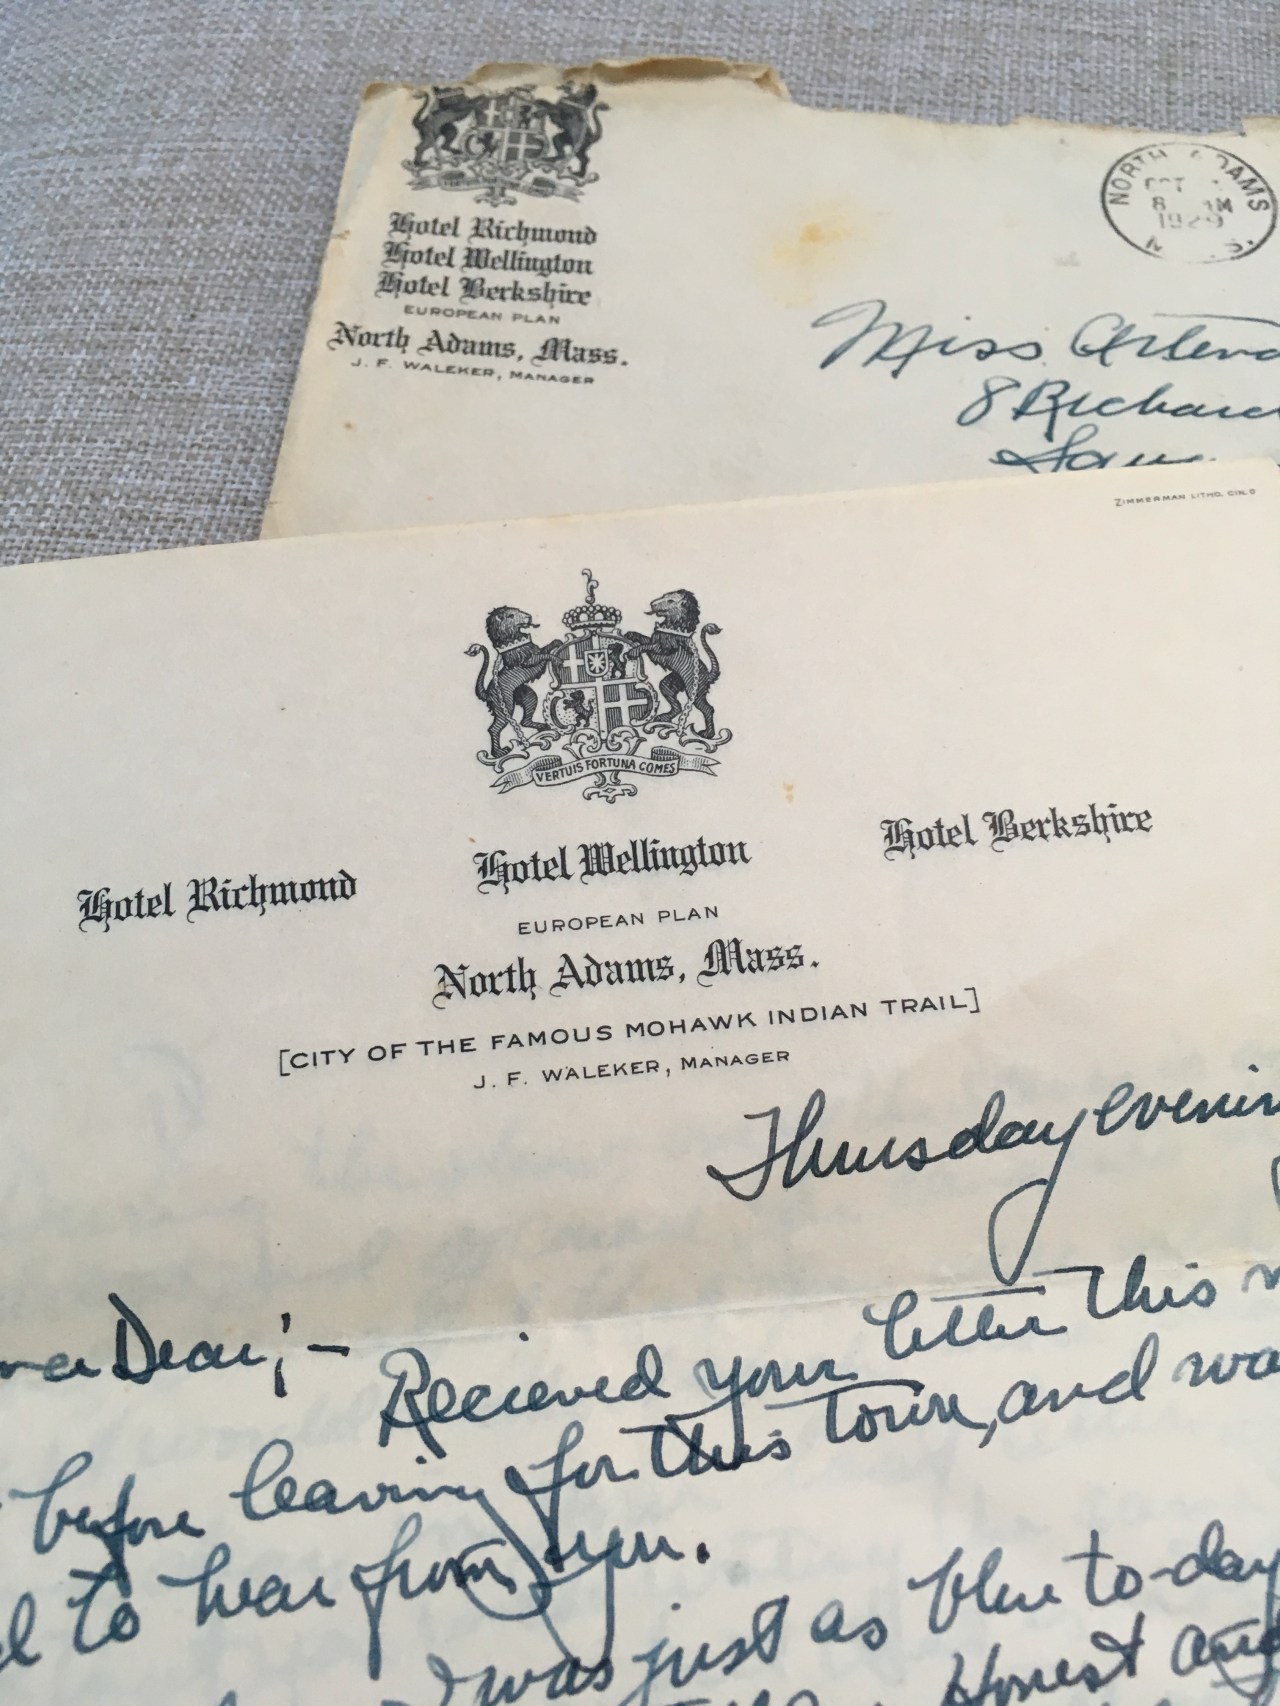 Hotel Richmond
Hotel Wellington
Hotel Berkshire
EUROPEAN PLAN
North Adams, Mass.
J. F. WALEKER, MANAGER
NORTH ADAMS
OCT
8 AM
1929
Miss
8 Richard
ZIMMERMAN LITHO. CIN. O
VERTUIS FORTUNA COMES
Hotel Richmond
Hotel Wellington
Hotel Berkshire
EUROPEAN PLAN
North Adams, Mass.
[CITY OF THE FAMOUS MOHAWK INDIAN TRAIL]
J. F. WALEKER, MANAGER
Thursday evenin
Dear;- Recieved your letter this
before leaving for this town, and wa
to hear from you.
I was just as blue to-day
Honest